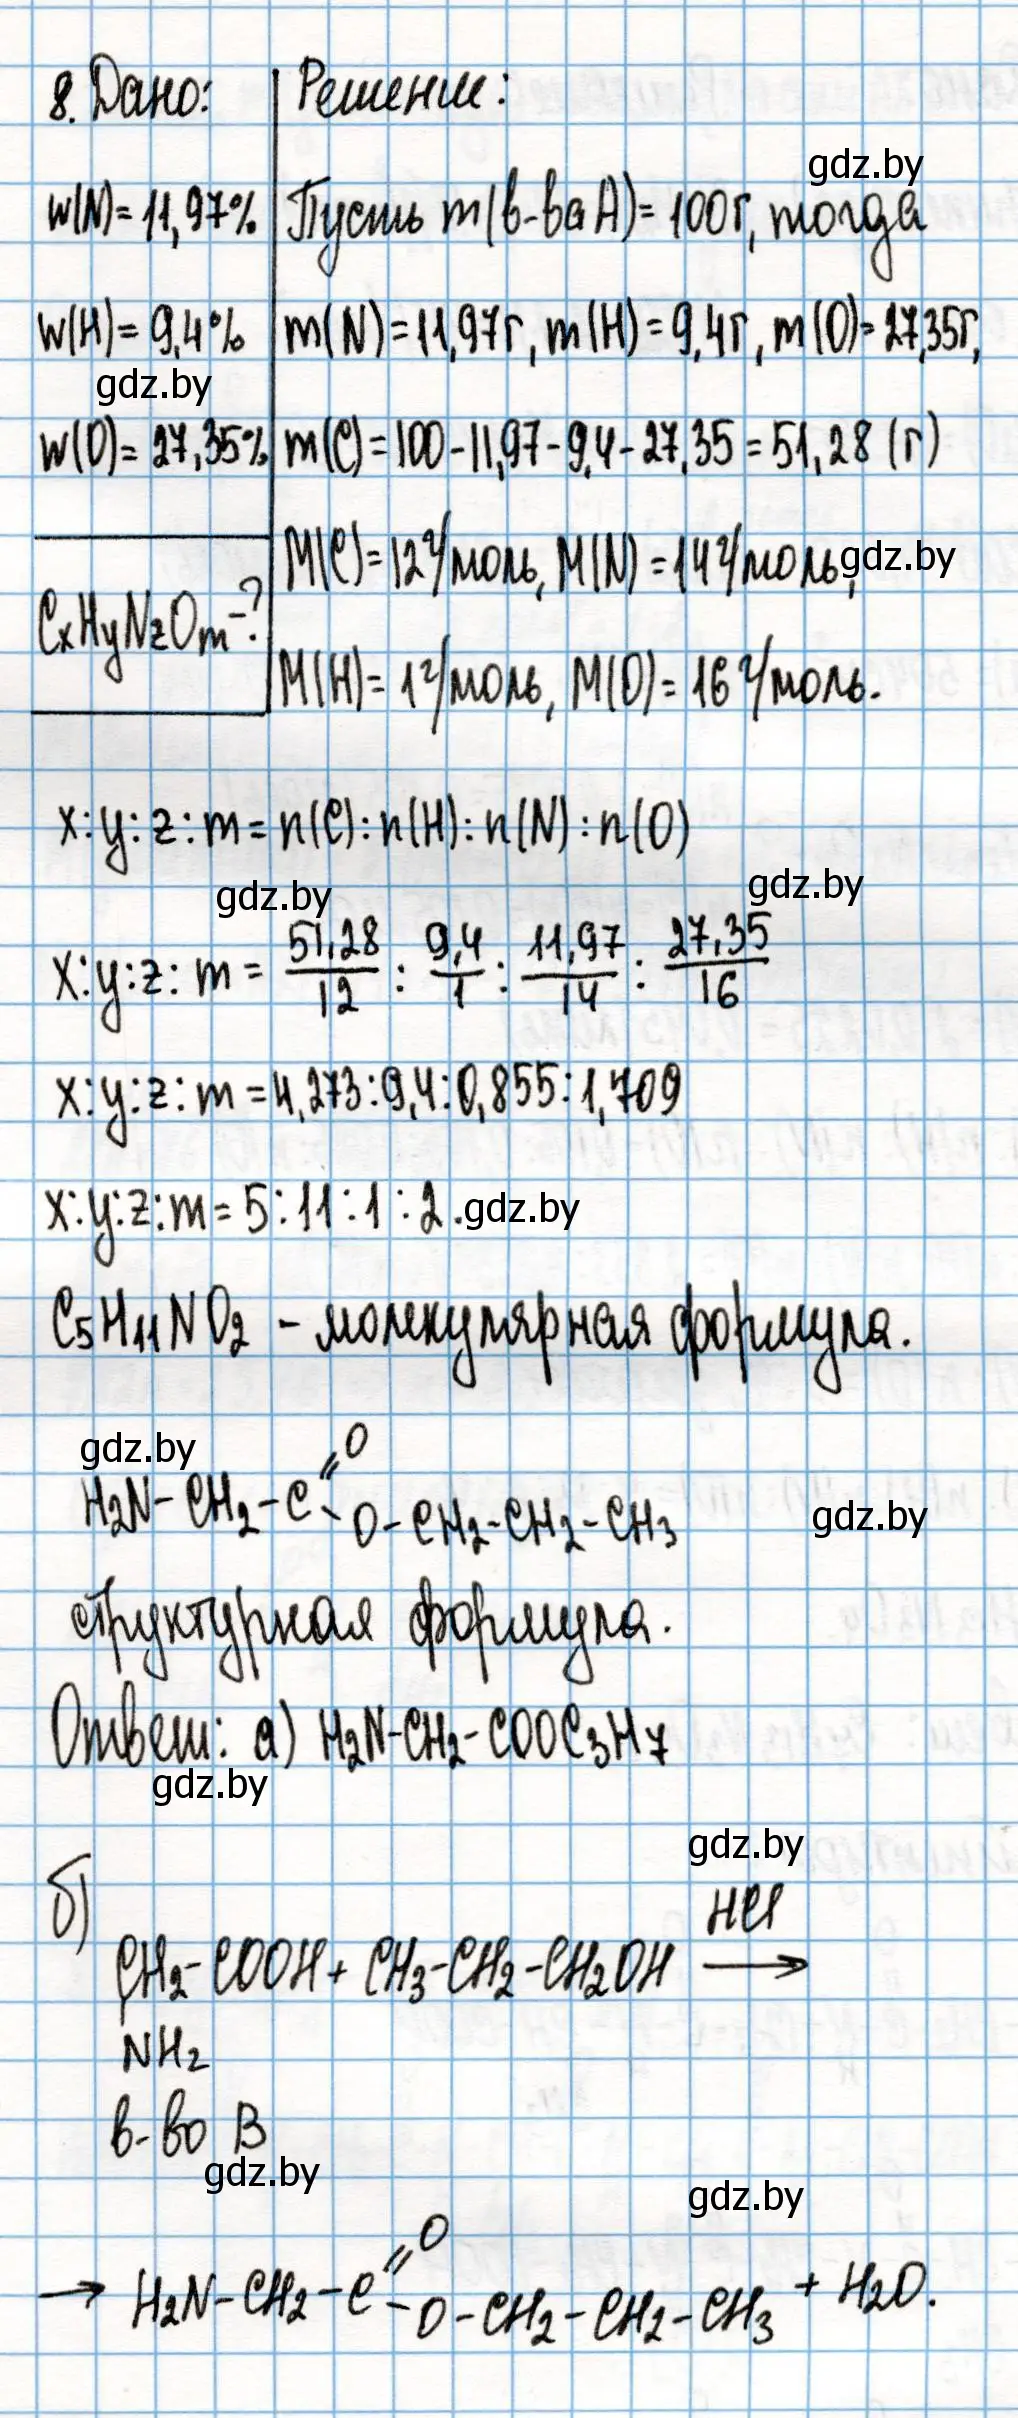 8. Дано: Решение:
gdz.by
w(N)= 11,97% Пусть m(в-ва А)= 100г, тогда
w(H)= 9,4% m(N)=11,97г, m(H)=9,4г, m(O)=27,35г,
gdz.by
w(O)= 27,35% m(C)=100-11,97-9,4-27,35=51,28 (г)
M(C)=12 г/моль, M(N)=14 г/моль, gdz.by
CxHyNzOm-?
M(H)= 1 г/моль, M(O)= 16 г/моль.
x:y:z:m= n(C):n(H):n(N):n(O)
gdz.by gdz.by
x:y:z:m = 51,28/12 : 9,4/1 : 11,97/14 : 27,35/16
x:y:z:m=4,273:9,4:0,855:1,709
x:y:z:m= 5:11:1:2. gdz.by
C5H11NO2 - молекулярная формула.
gdz.by
O
H2N-CH2-C gdz.by
O-CH2-CH2-CH3
структурная формула.
Ответ: а) H2N-CH2-COOC3H7
gdz.by
gdz.by
б) HCl
CH2-COOH+ CH3-CH2-CH2OH →
NH2
в-во В
gdz.by gdz.by
O
→ H2N-CH2-C + H2O.
O-CH2-CH2-CH3